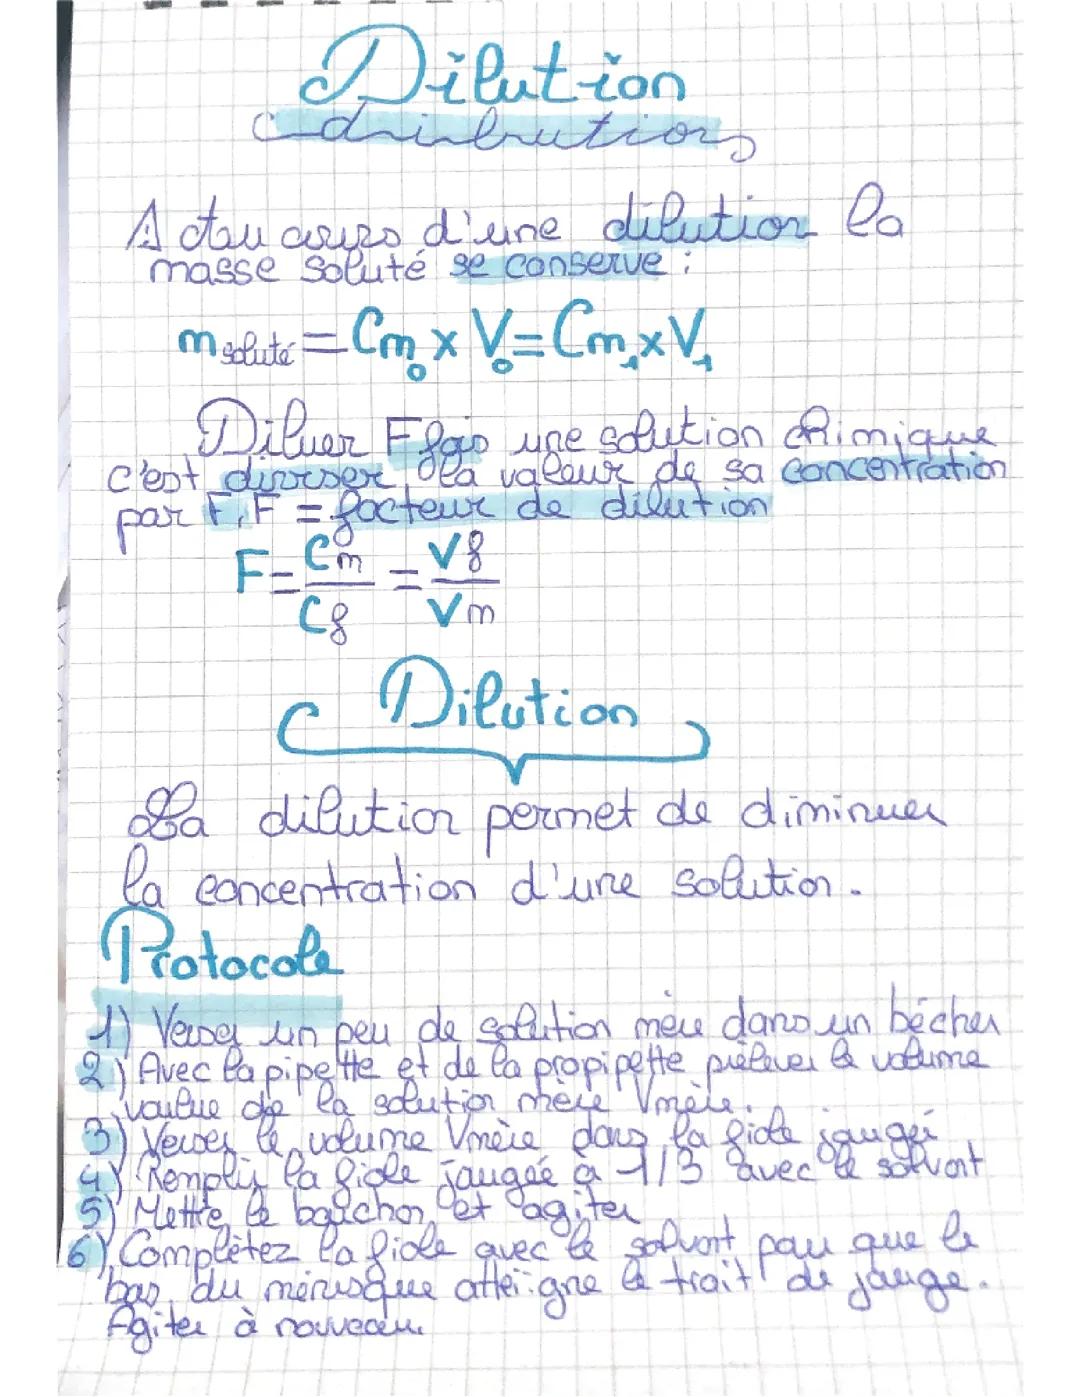 Dilution
dribution
A ctau cours d'une dilution la
masse soluté se conserve :
m soluté = Cm₀ x V₀ = Cm₁ x V₁
Diluer F fois une solution chimique
c'est diviser la valeur de sa concentration
par F, F = facteur de dilution
F = Cm / Cf = Vf / Vm
Dilution
La dilution permet de diminuer
la concentration d'une solution.
Protocole
1) Verser un peu de solution mère dans un bécher
2) Avec la pipette et de la propipette prélever le volume
voulue de la solution mère Vmère.
3) Verser le volume Vmère dans la fiole jaugée
4) Remplir la fiole jaugée a 1/3 avec le solvant
5) Mettre le bouchon et agiter
6) Complètez la fiole avec le solvant pour que le
bas du ménisque atteigne le trait de jauge.
Agiter à nouveau.